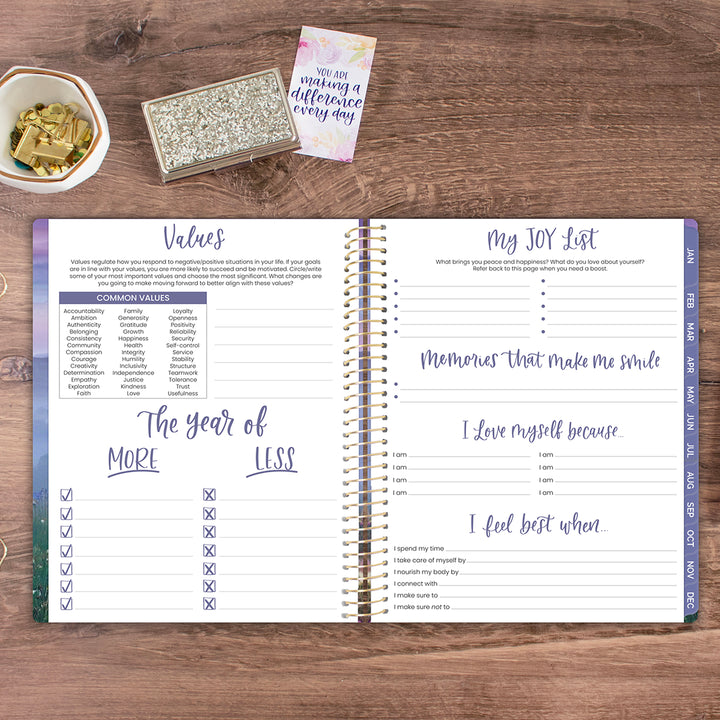 YOU ARE
making a
difference
every day
Values
Values regulate how you respond to negative/positive situations in your life. If your goals
are in line with your values, you are more likely to succeed and be motivated. Circle/write
some of your most important values and choose the most significant. What changes are
you going to make moving forward to better align with these values?
COMMON VALUES
Accountability Family Loyalty
Ambition Generosity Openness
Authenticity Gratitude Positivity
Belonging Growth Reliability
Consistency Happiness Security
Community Health Self-control
Compassion Integrity Service
Courage Humility Stability
Creativity Inclusivity Structure
Determination Independence Teamwork
Empathy Justice Tolerance
Exploration Kindness Trust
Faith Love Usefulness
The Year of
MORE LESS
My JOY List
What brings you peace and happiness? What do you love about yourself?
Refer back to this page when you need a boost.
Memories that make me smile
I Love myself because...
I am I am
I am I am
I am I am
I am I am
I feel best when...
I spend my time
I take care of myself by
I nourish my body by
I connect with
I make sure to
I make sure not to
JAN
FEB
MAR
APR
MAY
JUN
JUL
AUG
SEP
OCT
NOV
DEC